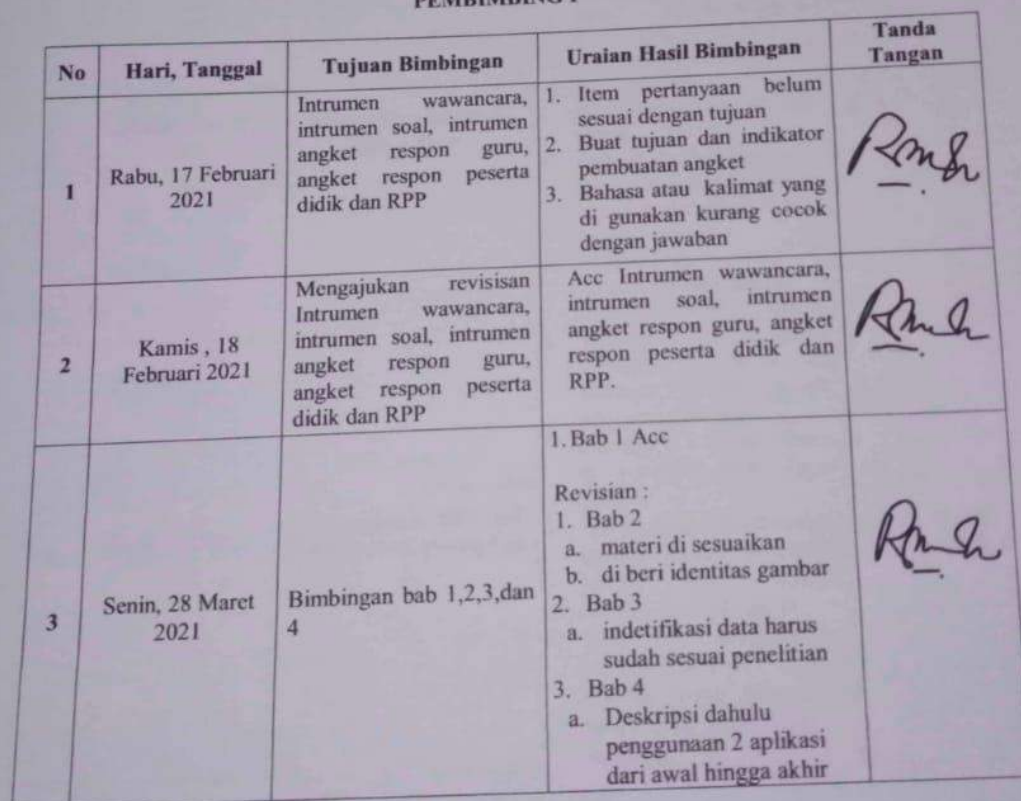 PEMBIMBING I
No
Hari, Tanggal
Tujuan Bimbingan
Uraian Hasil Bimbingan
Tanda
Tangan
1
Rabu, 17 Februari
2021
Intrumen wawancara,
intrumen soal, intrumen
angket respon guru,
angket respon peserta
didik dan RPP
1. Item pertanyaan belum
sesuai dengan tujuan
2. Buat tujuan dan indikator
pembuatan angket
3. Bahasa atau kalimat yang
di gunakan kurang cocok
dengan jawaban
2
Kamis , 18
Februari 2021
Mengajukan revisisan
Intrumen wawancara,
intrumen soal, intrumen
angket respon guru,
angket respon peserta
didik dan RPP
Acc Intrumen wawancara,
intrumen soal, intrumen
angket respon guru, angket
respon peserta didik dan
RPP.
3
Senin, 28 Maret
2021
Bimbingan bab 1,2,3,dan
4
1. Bab 1 Acc
Revisian :
1. Bab 2
a. materi di sesuaikan
b. di beri identitas gambar
2. Bab 3
a. indetifikasi data harus
sudah sesuai penelitian
3. Bab 4
a. Deskripsi dahulu
penggunaan 2 aplikasi
dari awal hingga akhir